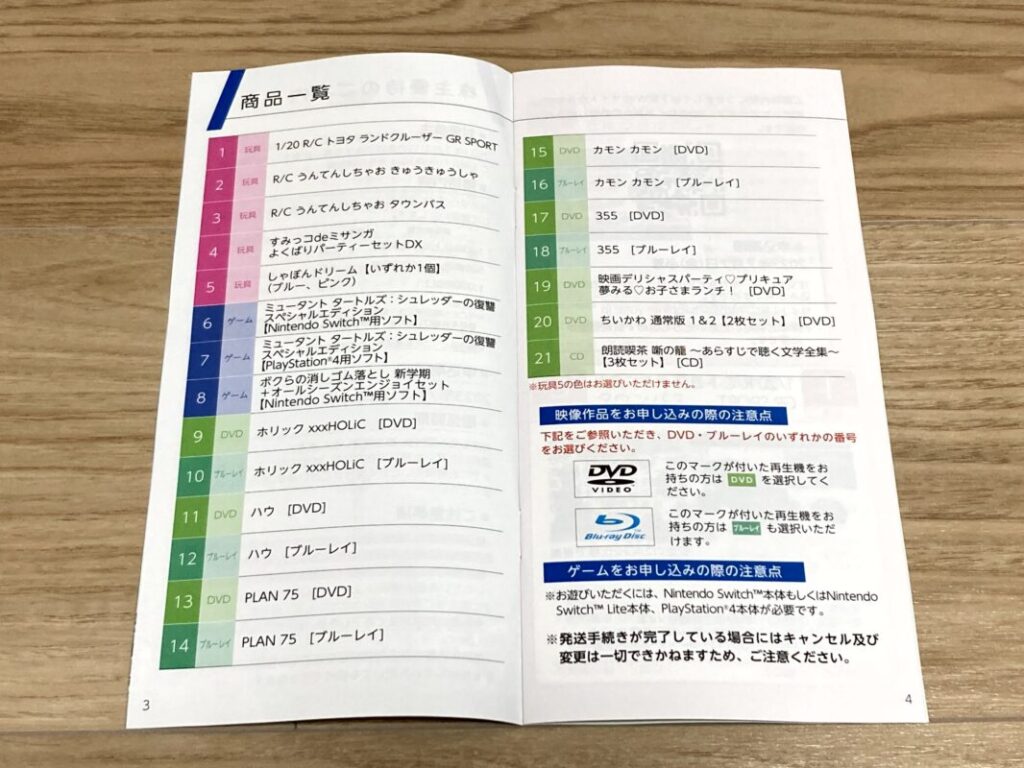 商品一覧
1 玩具 1/20 R/C トヨタ ランドクルーザー GR SPORT
2 玩具 R/C うんてんしちゃお きゅうきゅうしゃ
3 玩具 R/C うんてんしちゃお タウンバス
4 玩具 すみっコdeミサンガ
よくばりパーティーセットDX
5 玩具 しゃぼんドリーム【いずれか1個】
(ブルー、ピンク)
6 ゲーム ミュータント タートルズ:シュレッダーの復讐
スペシャルエディション
【Nintendo Switch™用ソフト】
7 ゲーム ミュータント タートルズ:シュレッダーの復讐
スペシャルエディション
【PlayStation®4用ソフト】
8 ゲーム ボクらの消しゴム落とし 新学期
+オールシーズンエンジョイセット
【Nintendo Switch™用ソフト】
9 DVD ホリック xxxHOLiC [DVD]
10 ブルーレイ ホリック xxxHOLiC [ブルーレイ]
11 DVD ハウ [DVD]
12 ブルーレイ ハウ [ブルーレイ]
13 DVD PLAN 75 [DVD]
14 ブルーレイ PLAN 75 [ブルーレイ]
3
15 DVD カモン カモン [DVD]
16 ブルーレイ カモン カモン [ブルーレイ]
17 DVD 355 [DVD]
18 ブルーレイ 355 [ブルーレイ]
19 DVD 映画デリシャスパーティ♡プリキュア
夢みる♡お子さまランチ! [DVD]
20 DVD ちいかわ 通常版 1&2【2枚セット】 [DVD]
21 CD 朗読喫茶 噺の籠 ～あらすじで聴く文学全集～
【3枚セット】 [CD]
※玩具5の色はお選びいただけません。
映像作品をお申し込みの際の注意点
下記をご参照いただき、DVD・ブルーレイのいずれかの番号
をお選びください。
DVD
VIDEO
このマークが付いた再生機をお
持ちの方は DVD を選択してく
ださい。
Blu-ray Disc
このマークが付いた再生機をお
持ちの方は ブルーレイ も選択いただ
けます。
ゲームをお申し込みの際の注意点
※お遊びいただくには、Nintendo Switch™本体もしくはNintendo
Switch™ Lite本体、PlayStation®4本体が必要です。
※発送手続きが完了している場合にはキャンセル及び
変更は一切できかねますため、ご注意ください。
4